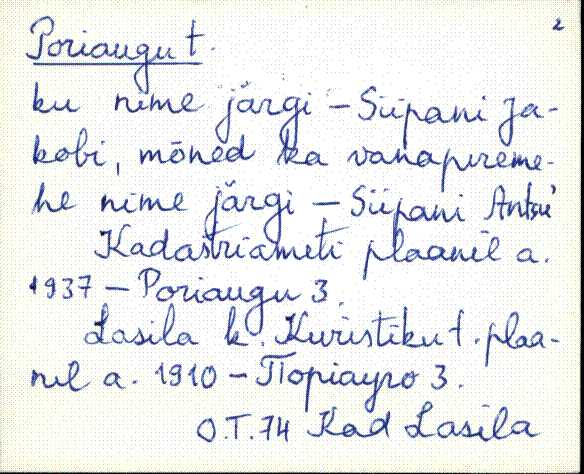 2
Poriaugu t.
ku nime järgi – Siipani Ja-
kobi, mõned ka vanapereme-
he nime järgi – Siipani Antsu
Kadastriameti plaanil a.
1937 – Poriaugu 3.
Lasila k. Kuristiku t. plaa-
nil a. 1910 – Порiауго 3.
O.T. 74 Kad Lasila